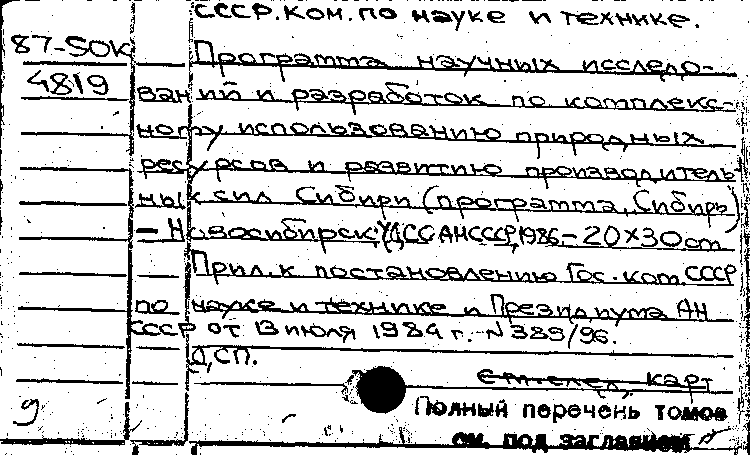 СССР. Ком. по науке и технике.
87-SOK
4819
Программа научных исследо-
ваний и разработок по комплекс-
ному использованию природных
ресурсов и развитию производитель-
ных сил Сибири (программа „Сибирь")
- Новосибирск: СО АН СССР, 1986 - 20х30 см
Прил. к постановлению Гос. ком. СССР
по науке и технике и Президиума АН
СССР от 13 июля 1984 г. - N 385/96.
ДСП.
см. след. карт
Полный перечень томов
см. под заглавием